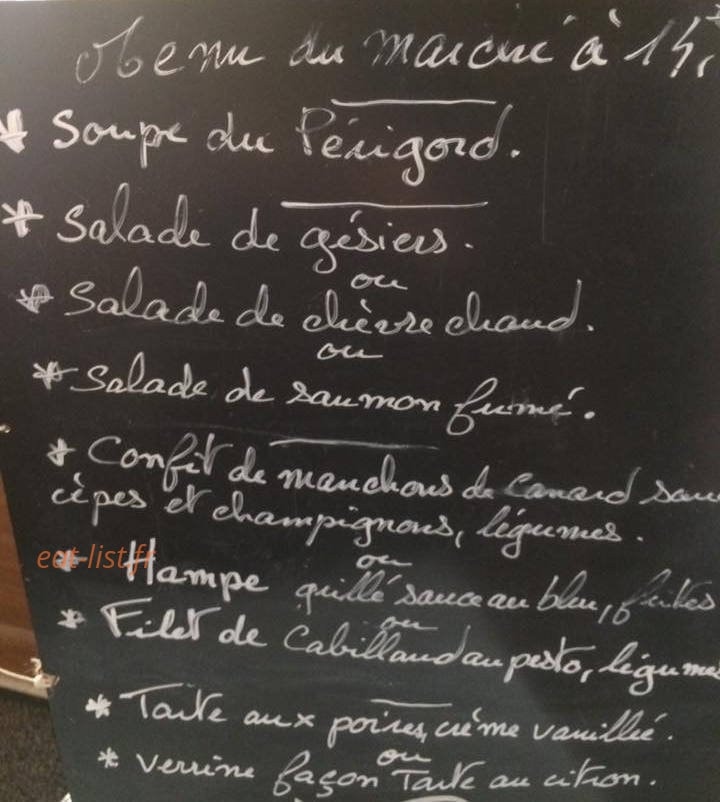 Menu du marché à 14,
* Soupe du Périgord.
* Salade de gésiers.
ou
* Salade de chèvre chaud.
ou
* Salade de saumon fumé.
* Confit de manchons de canard sau
cèpes et champignons, légumes.
ou
eat-list.fr
* Hampe grillé sauce au bleu, frites
ou
* Filet de Cabillaud au pesto, légumes
* Tarte aux poires, crème vanillée.
ou
* Verrine façon Tarte au citron.